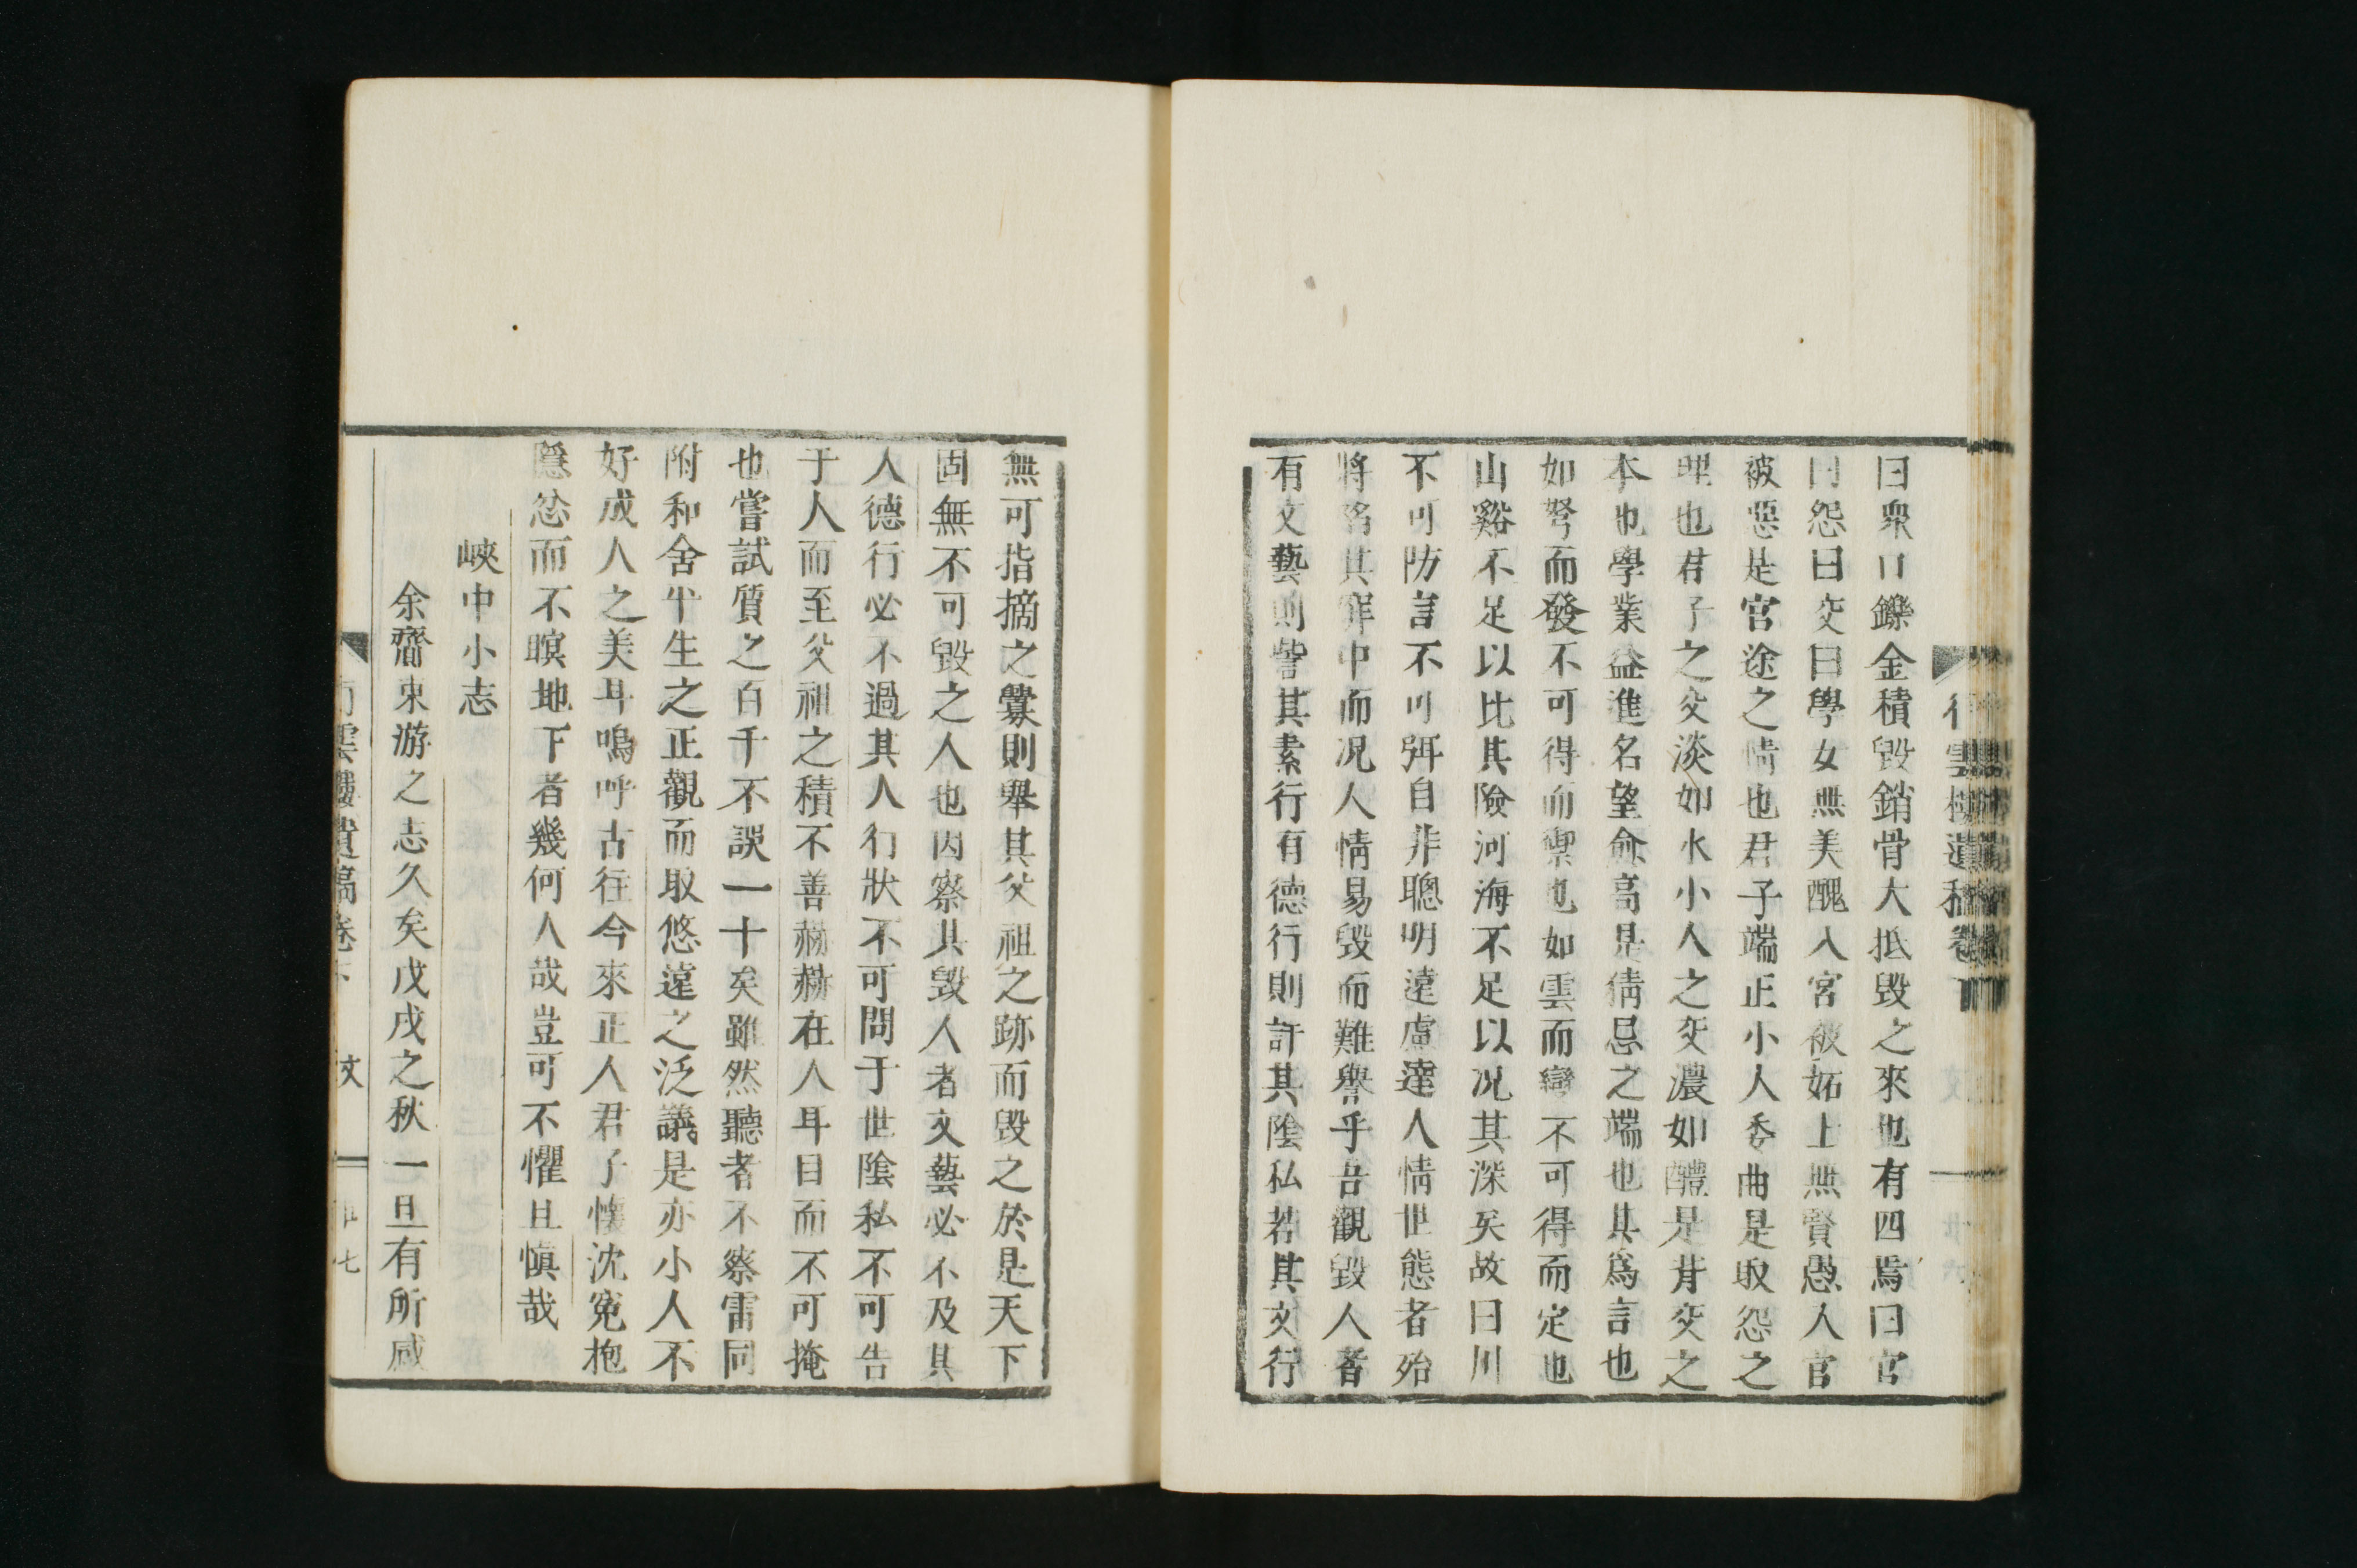 曰衆口鑠金積毀銷骨大抵毀之來也有四焉曰官
曰怨曰交曰學女無美醜入宮被妬士無賢愚入官
被惡是官途之情也君子端正小人委曲是取怨之
理也君子之交淡如水小人之交濃如醴是背交之
本也學業益進名望愈高是猜忌之端也其爲言也
如弩而發不可得而禦也如雲而變不可得而定也
山谿不足以比其險河海不足以况其深矣故曰川
不可防言不可弭自非聰明遠慮達人情世態者殆
將陷其穽中而况人情易毀而難譽乎吾觀毀人者
有文藝則訾其素行有德行則訐其陰私若其文行
無可指摘之釁則舉其父祖之跡而毀之於是天下
固無不可毀之人也因察其毀人者文藝必不及其
人德行必不過其人行狀不可問于世陰私不可告
于人而至父祖之積不善赫赫在人耳目而不可掩
也嘗試質之百千不誤一十矣雖然聽者不察雷同
附和舍平生之正觀而取悠遠之泛議是亦小人不
好成人之美耳嗚呼古往今來正人君子懷沈冤抱
隱忿而不瞑地下者幾何人哉豈可不懼且愼哉
峽中小志
余齎東游之志久矣戊戌之秋一旦有所感
行雲樓遺稿卷下 文 卅七